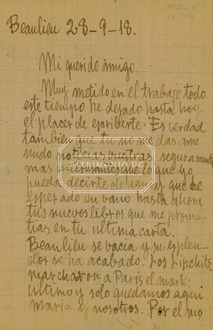 Beaulieu 28-9-18.
Mi querido amigo.
Muy metido en el trabajo todo
este tiempo he dejado hasta hoy
el placer de escribirte. Es verdad
tambien que tu no me das
noticias vuestras, seguramente
mas interesantes que lo que yo
pueda decirte de aqui y que he
esperado en vano hasta ahora
tus nuevos libros que me prometias
en tu ultima carta.
Beaulieu se vacia y su esplen-
dor se ha acabado. Los Lipchitz
marcharon a Paris el martes
ultimo y solo quedamos aqui
Maria y nosotros. Por el mo